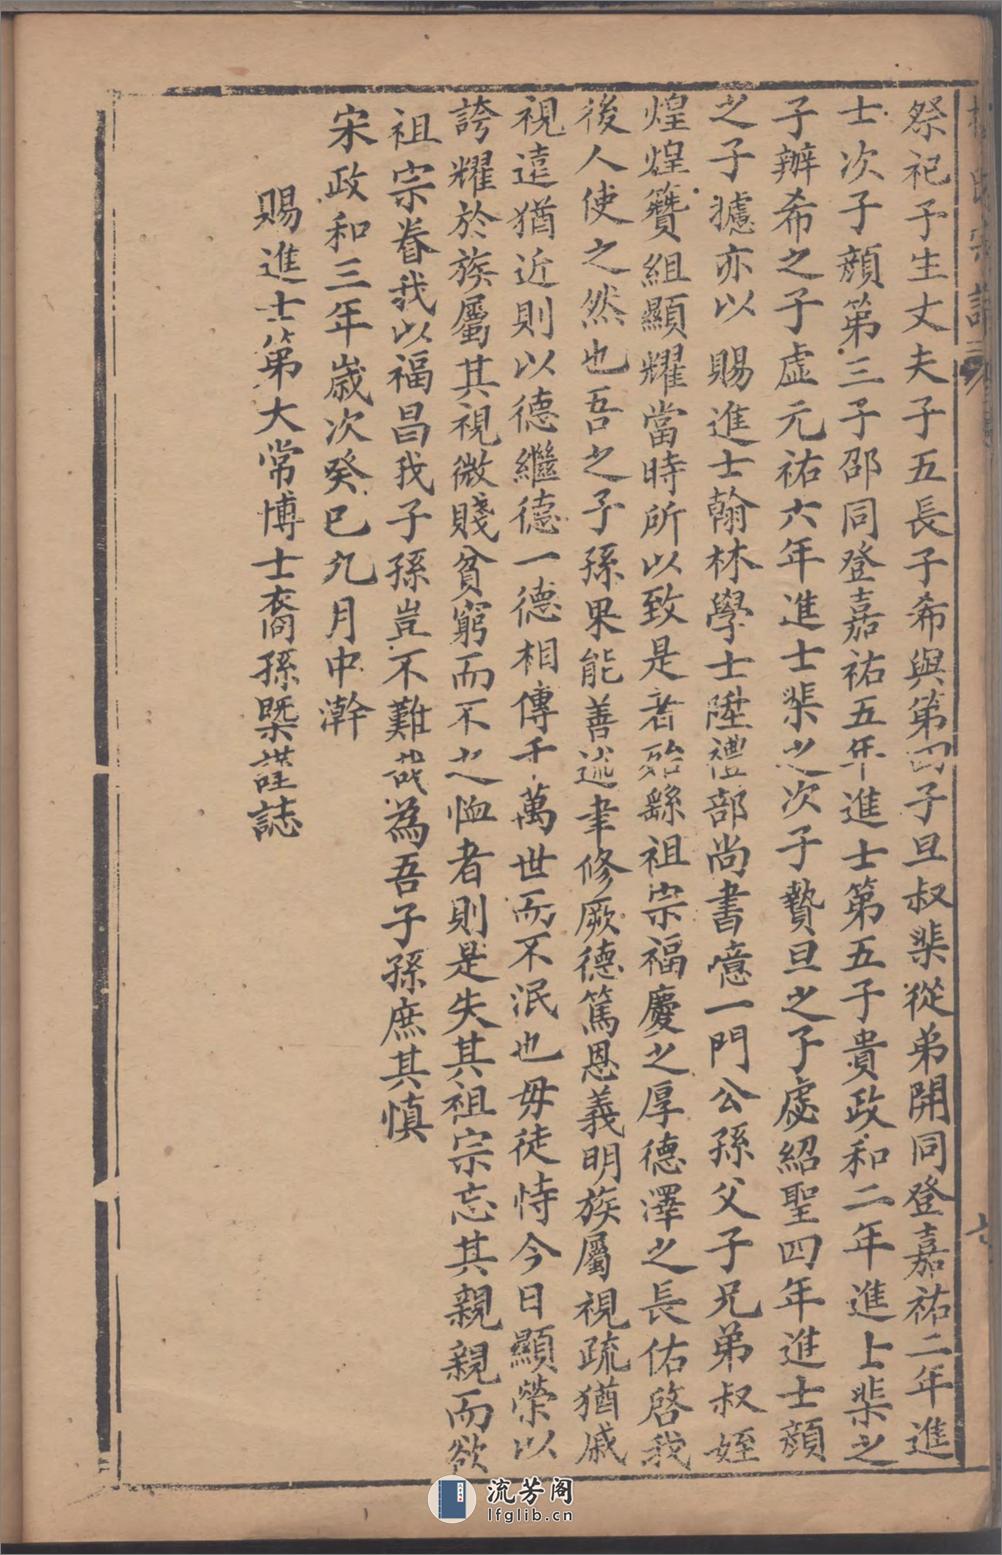 祭祀予生丈夫子五長子希與第四子旦叔渠從弟開同登嘉祐二年進
士次子顏第三子邵同登嘉祐五年進士第五子貴政和二年進士渠之
子辦希之子虛元祐六年進士渠之次子贄旦之子處紹聖四年進士顏
之子據亦以賜進士翰林學士陞禮部尚書噫一門公孫父子兄弟叔姪
煌煌簪組顯耀當時所以致是者殆繇祖宗福慶之厚德澤之長佑啓我
後人使之然也吾之子孫果能善述聿修厥德篤恩義明族屬視疏猶戚
視遠猶近則以德繼德一德相傳千萬世而不泯也毋徒恃今日顯榮以
誇耀於族屬其視微賤貧窮而不之恤者則是失其祖宗忘其親親而欲
祖宗眷我以福昌我子孫豈不難哉為吾子孫庶其慎
宋政和三年歲次癸巳九月中澣
賜進士第大常博士裔孫槩謹誌
流芳阁
lfglib.cn